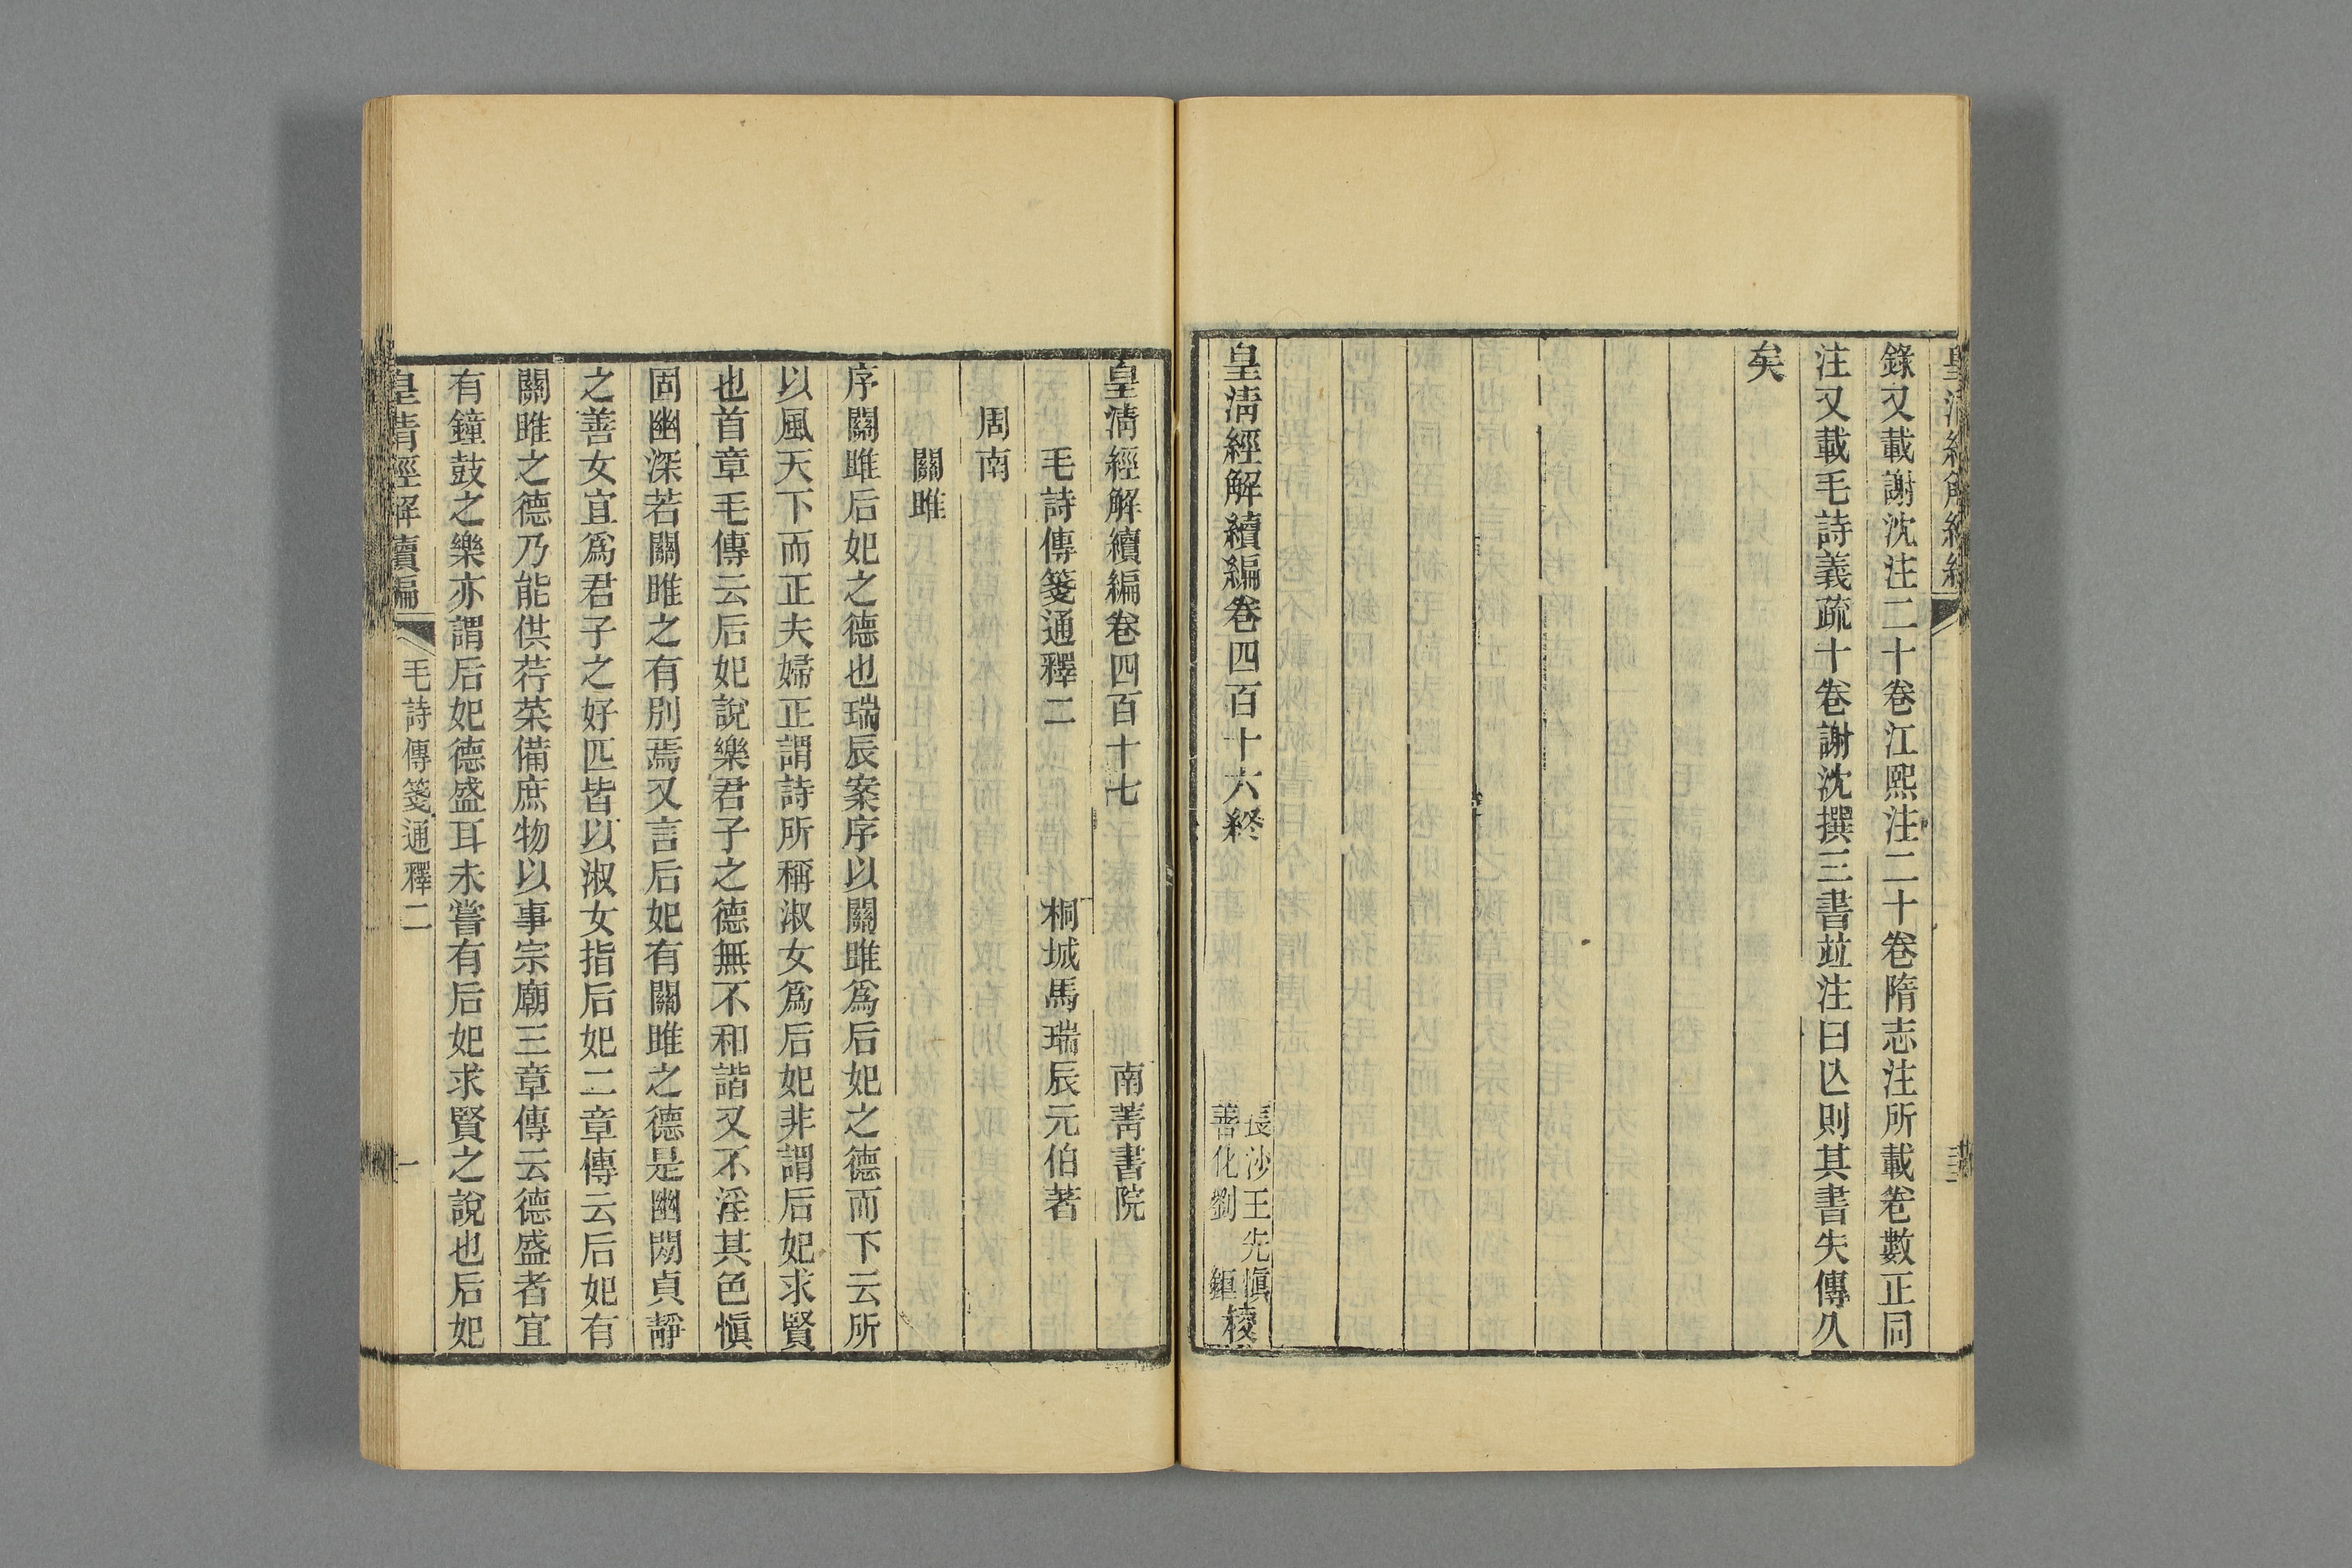 錄又載謝沈注二十卷江熙注二十卷隋志注所載卷數正同
注又載毛詩義疏十卷謝沈撰三書竝注曰亾則其書失傳久
矣
皇淸經解續編卷四百十六終
長沙王先愼
善化劉 鉅
校
皇淸經解續編卷四百十七
南菁書院
毛詩傳箋通釋二
桐城馬瑞辰元伯著
周南
關雎
序關雎后妃之德也瑞辰案序以關雎爲后妃之德而下云所
以風天下而正夫婦正謂詩所稱淑女爲后妃非謂后妃求賢
也首章毛傳云后妃說樂君子之德無不和諧又不淫其色愼
固幽深若關雎之有別焉又言后妃有關雎之德是幽閒貞靜
之善女宜爲君子之好匹皆以淑女指后妃二章傳云后妃有
關雎之德乃能供荇菜備庶物以事宗廟三章傳云德盛者宜
有鐘鼓之樂亦謂后妃德盛耳未嘗有后妃求賢之說也后妃
皇淸經解續編
毛詩傳箋通釋二
一